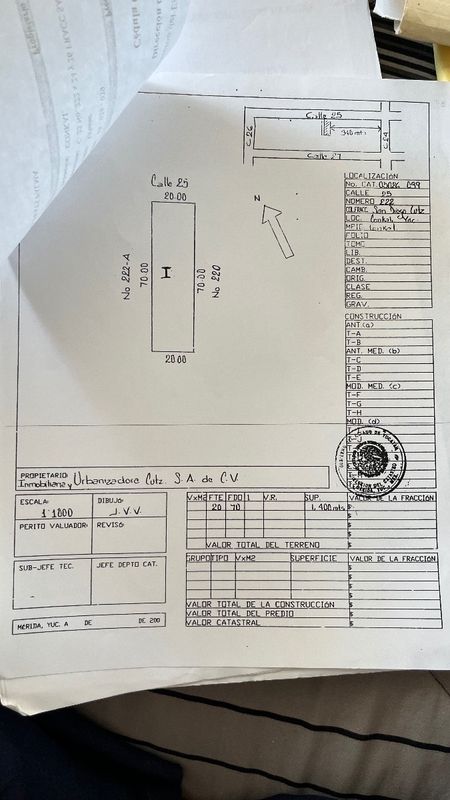 Calle 25
C 26
340 mts
C 24
Calle 27
N
Calle 25
20.00
No 222-A
70.00
I
70.00
No 220
20.00
LOCALIZACIÓN
No. CAT.
CALLE 25
NUMERO 222
San Diego Cutz
LOC. Conkal Yuc.
MPIO. Conkal
FOLIO
TOMO
LIB.
DEST.
CAMB.
ORIG.
CLASE
REG.
GRAV.
CONSTRUCCIÓN
ANT.(a)
T-A
T-B
ANT. MED. (b)
T-C
T-D
T-E
MOD. MED. (c)
T-F
T-G
T-H
MOD. (d)
PROPIETARIO:
Inmobiliaria y Urbanizadora Cutz. S.A. de C.V
ESCALA:
1:1000
DIBUJO:
J. V. V.
PERITO VALUADOR:
REVISÓ:
SUB-JEFE TEC.
JEFE DEPTO CAT.
MÉRIDA, YUC. A DE DE 200
VxM2 FTE FDO 1 V.R. SUP. VALOR DE LA FRACCION
20 70 1,400 mts $
$
$
$
VALOR TOTAL DEL TERRENO $
GRUPO TIPO VxM2 SUPERFICIE VALOR DE LA FRACCION
$
$
$
$
VALOR TOTAL DE LA CONSTRUCCIÓN $
VALOR TOTAL DEL PREDIO $
VALOR CATASTRAL $